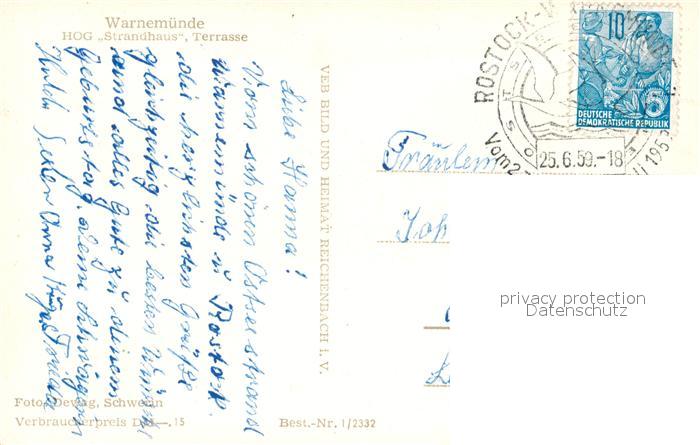 Warnemünde
HOG „Strandhaus", Terrasse
Liebe Hanna!
Vom schönen Ostseestrand
Warnemünde u Rostock
die herzlichsten Grüße
gleichzeitig die besten Wünsche
und alles Gute zu deinem
Geburtstag. Deine Schwägerin
Anna Frieda
Foto: Dewag, Schwerin
Verbraucherpreis DM —.15
Best.-Nr. 1/2332
VEB BILD UND HEIMAT REICHENBACH i. V.
Fräulein
Joh
privacy protection
Datenschutz
ROSTOCK-W
Vom 2
25.6.59.-18
10
5
DEUTSCHE
DEMOKRATISCHE REPUBLIK